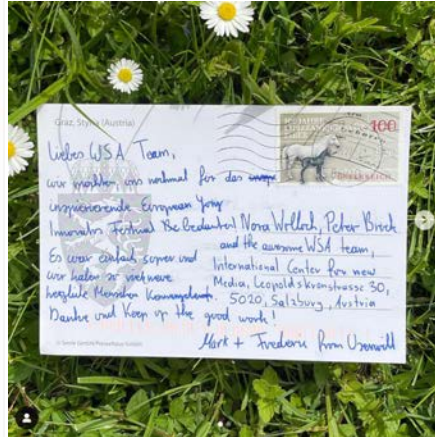 Graz, Styria (Austria)
100
ÖSTERREICH
Liebes WSA Team,
wir möchten uns nochmal für das
inspirierende European Young
Innovators Festival Bedanken!
Es war einfach super und
wir haben so
herzliche Menschen kennengelernt.
Danke und Keep up the good work!
Mark + Frederic from Userwill
Nora Wolloch, Peter Bruck
and the awesome WSA team,
International Center for new
Media, Leopoldskronstrasse 30,
5020, Salzburg, Austria